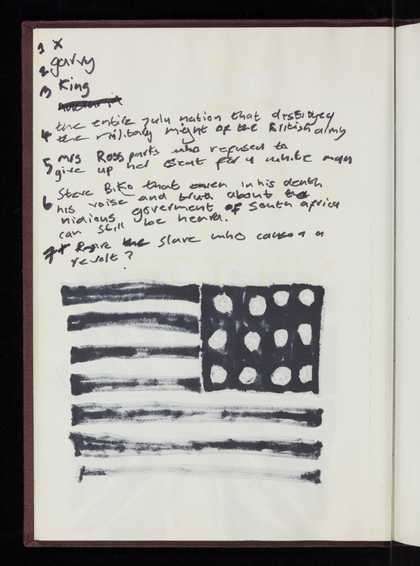 1 X
2 garvy
3 King
4 the entire zulu nation that distroyed
the military might of the British army
5 Mrs Ross parks who refused to
give up her seat for a white man
6 Steve Biko that even in his death
his voise and truth about the
nidious goverment of South africa
can still be heard.
7 the slave who caused a
revolt?